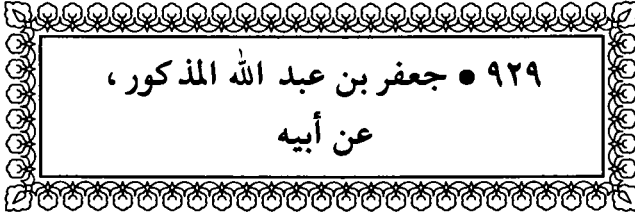 ٩٢٩ • جعفر بن عبد الله المذكور ،
عن أبيه